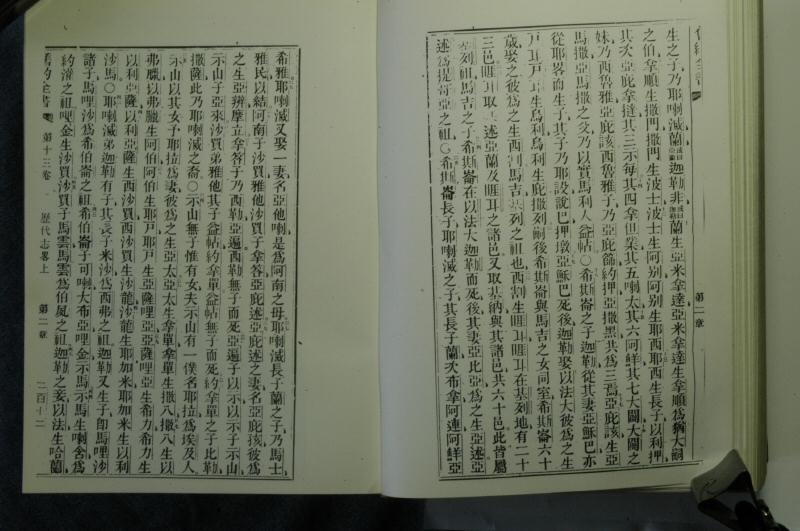 生之子乃耶喇滅蘭迦勒非蘭生亞米拿達亞米拿達生拿順爲猶大嗣
之伯拿順生撒門撒門生波士波士生阿別阿別生耶西耶西生長子以利押
其次亞庇拿達其三示每其四拿但業其五喇太其六阿鮮其七大闢大闢之
妹乃西魯雅亞庇該西魯雅子乃亞庇篩約押亞撒黑共爲三焉亞庇該生亞
馬撒亞馬撒之父乃以實馬利人益帖〇希斯崙之子迦勒從其妻亞穌巴亦
從耶畧而生子其子乃耶設說巴押墩亞穌巴死後迦勒娶以法大彼爲之生
戶耳戶耳生烏利烏利生庇撒列嗣後希斯崙與馬吉之女同室希斯崙六十
歲娶之彼爲之生西割馬吉基列之祖也西割生睚耳睚耳在基列地有二十
三邑睚耳取述亞蘭及睚耳之諸邑又取基納與其諸邑共六十邑此皆屬
基列祖馬吉之子希斯崙在以法大迦勒而死後其妻亞比亞爲之生亞述亞
述爲提哥亞之祖〇希斯崙長子耶喇滅之子其長子蘭次布拿阿連阿鮮亞
希雅耶喇滅又娶一妻名亞他喇是爲阿南之母耶喇滅長子蘭之子乃馬士
雅民以結阿南子沙買雅他沙買子拿答亞庇述亞庇述之妻名亞庇孩彼爲
之生亞辨摩立拿答子乃西勒亞遍西勒無子而死亞遍子以示以示子示山
示山子亞來沙買弟雅他其子益帖約拿單益帖無子而死約拿單之子比勒
撒薩此乃耶喇滅之裔〇示山無子惟有女夫示山有一僕名耶拉爲埃及人
示山以其女予耶拉爲妻彼爲之生亞太亞太生拿單拿單生撒八撒八生以
弗臘以弗臘生阿伯阿伯生耶戶耶戶生亞薩哩亞亞薩哩亞生希力希力生
以利亞薩以利亞薩生西沙買西沙買生沙龍沙龍生耶加米耶加米生以利
沙馬〇耶喇滅弟迦勒有子其長子米沙爲西弗之祖迦勒又生子卽馬哩沙
諸子馬哩沙爲希伯崙之祖希伯崙子可喇大布亞哩金示馬示馬生喇含爲
約濱之祖哩金生沙買沙買子馬雲馬雲爲伯夙之祖迦勒之妾以法生哈蘭
舊約全書 第十三卷 歷代志畧上 第二章 二百十二
舊約全書 第二章